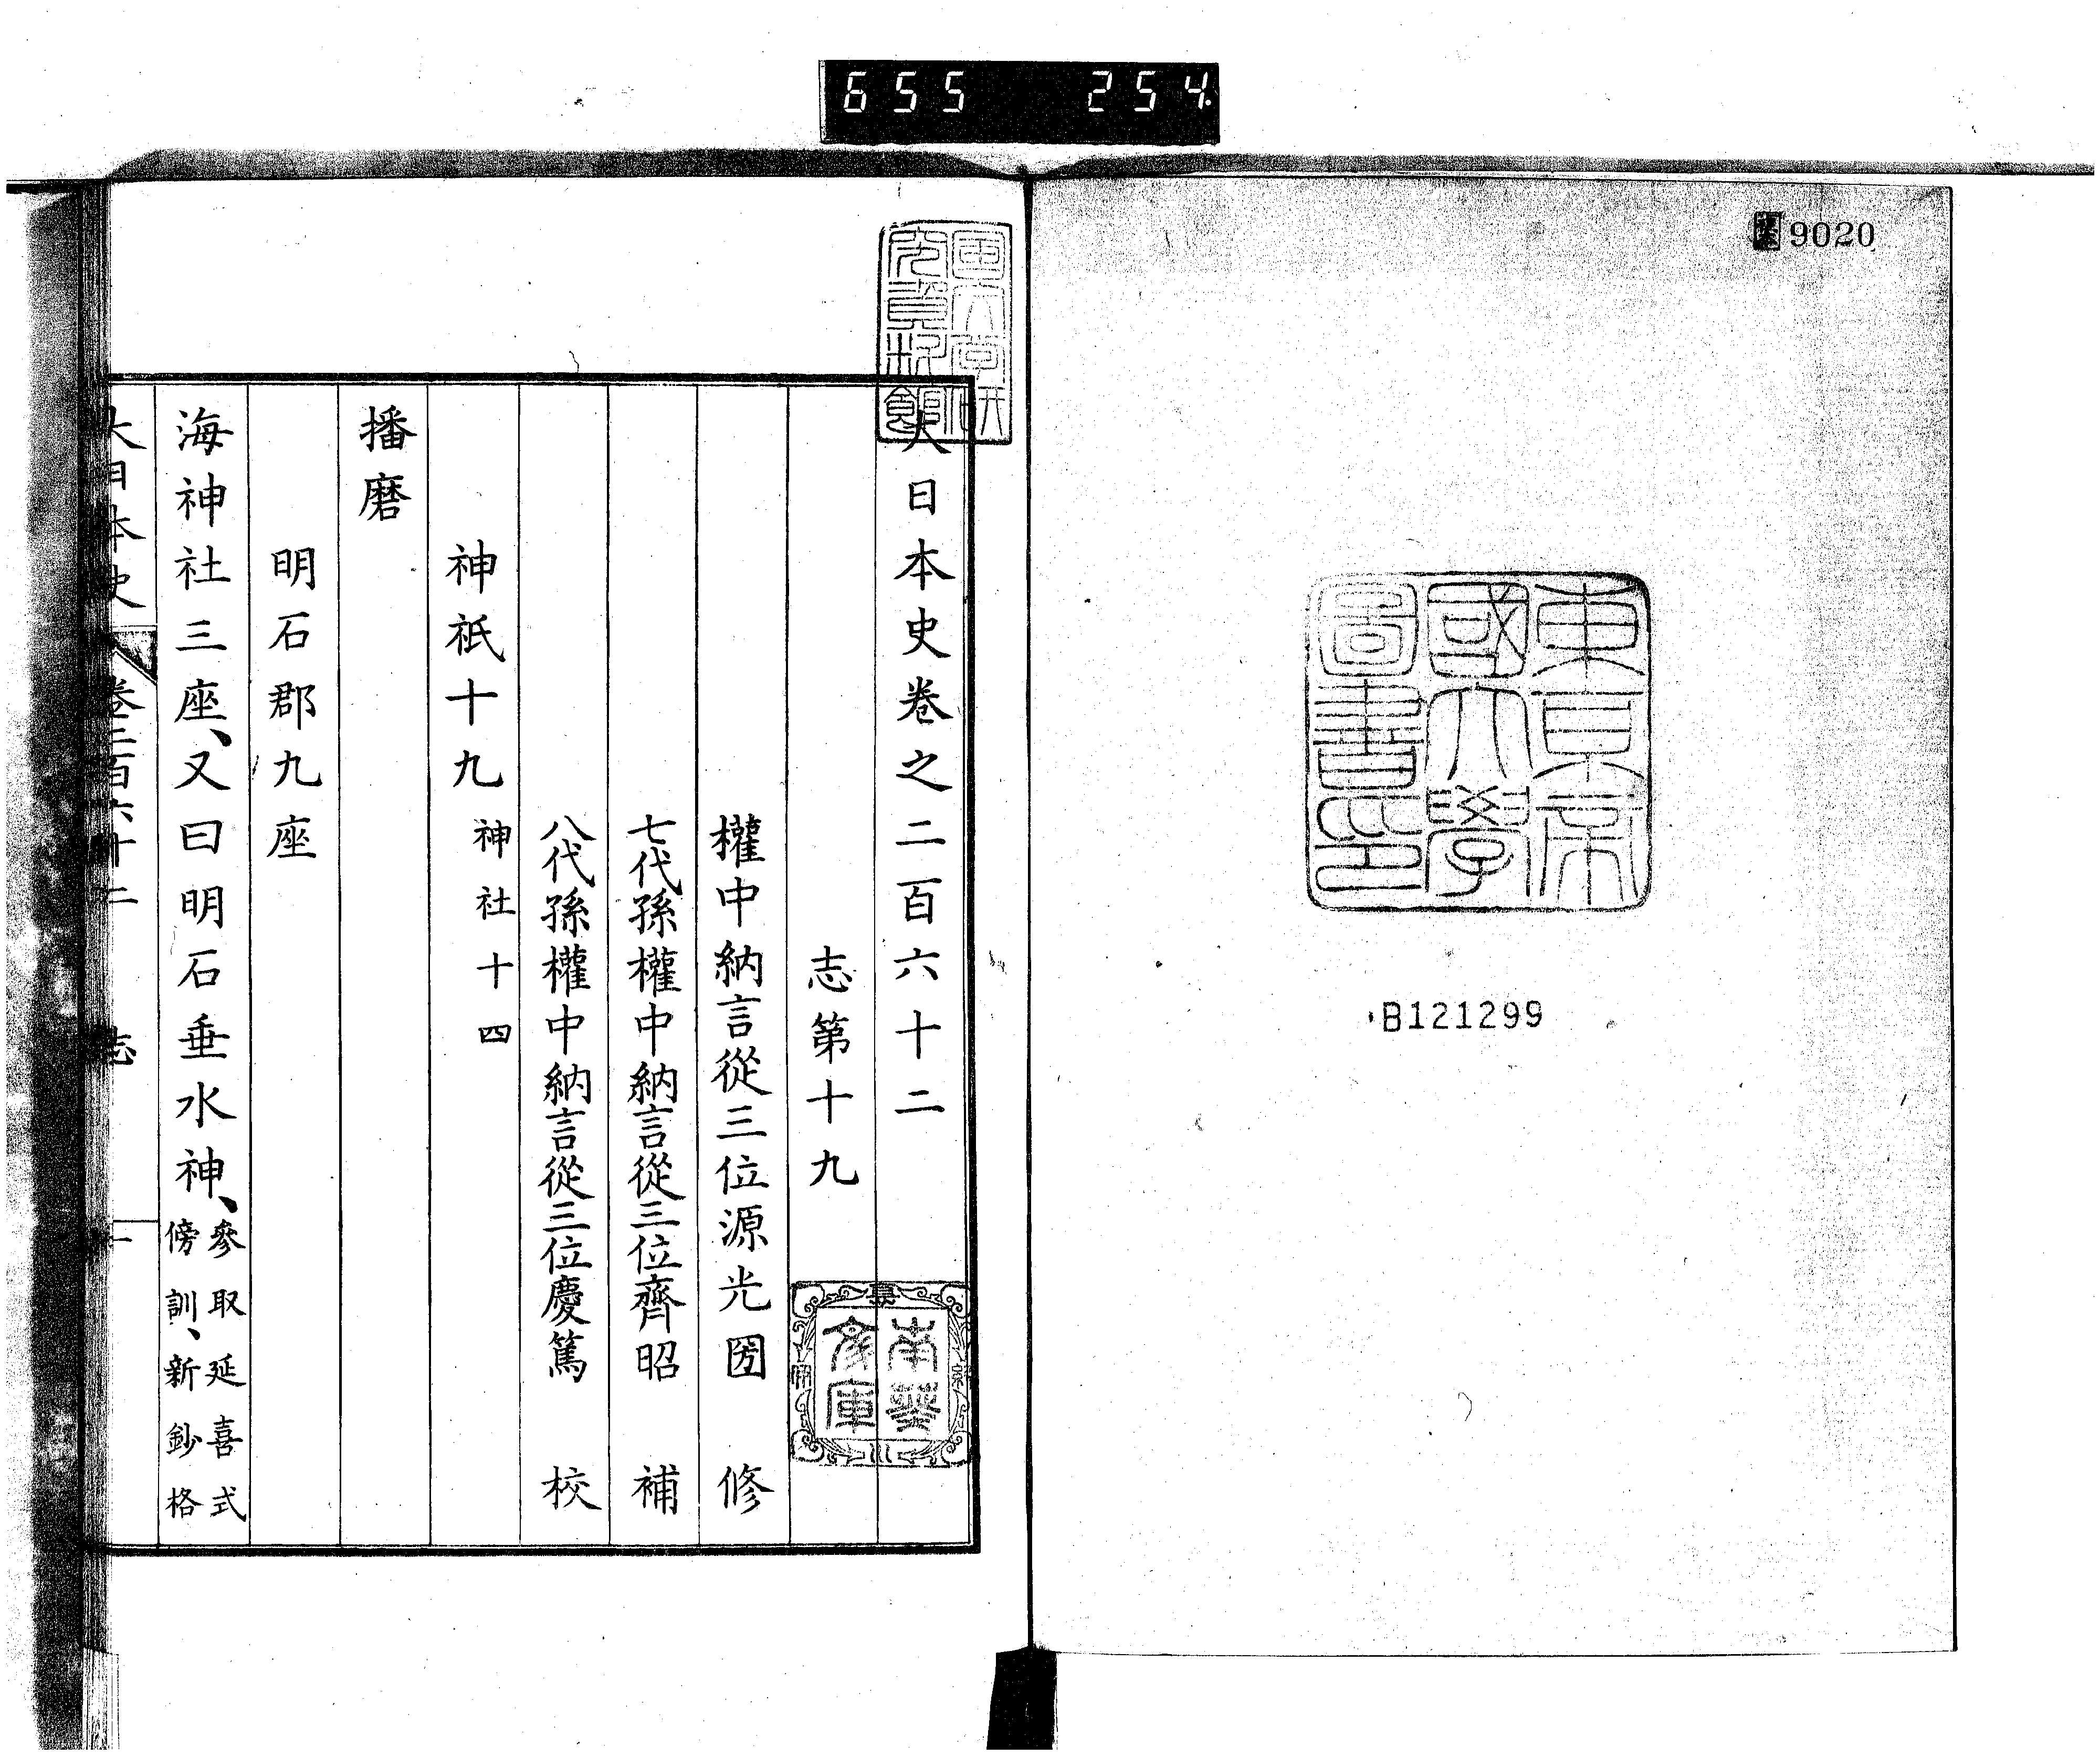 655 254.
9020
東京帝
國大學
圖書印
B121299
大日本史卷之二百六十二
志第十九
權中納言從三位源光圀 修
七代孫權中納言從三位齊昭 補
八代孫權中納言從三位慶篤 校
神祇十九 神社十四
播磨
明石郡九座
海神社三座、又曰明石垂水神、參取延喜式
傍訓、新鈔格
大日本史 卷二百六十二 志 一
南葵
文庫